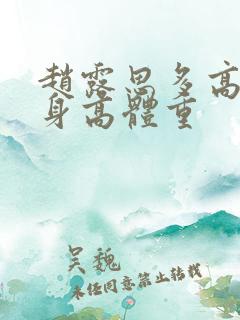 趙露思多高
身高體重
吴魏
未经同意禁止转载